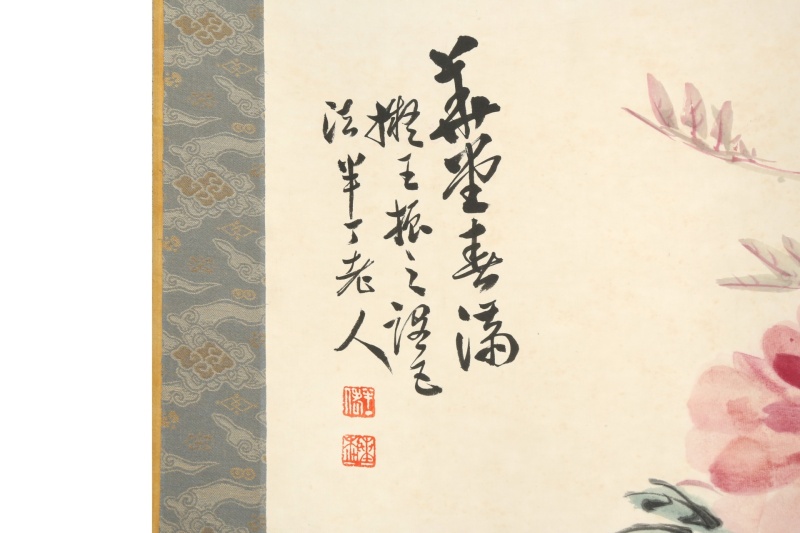 華堂春滿
擬王振之設色
法半丁老人